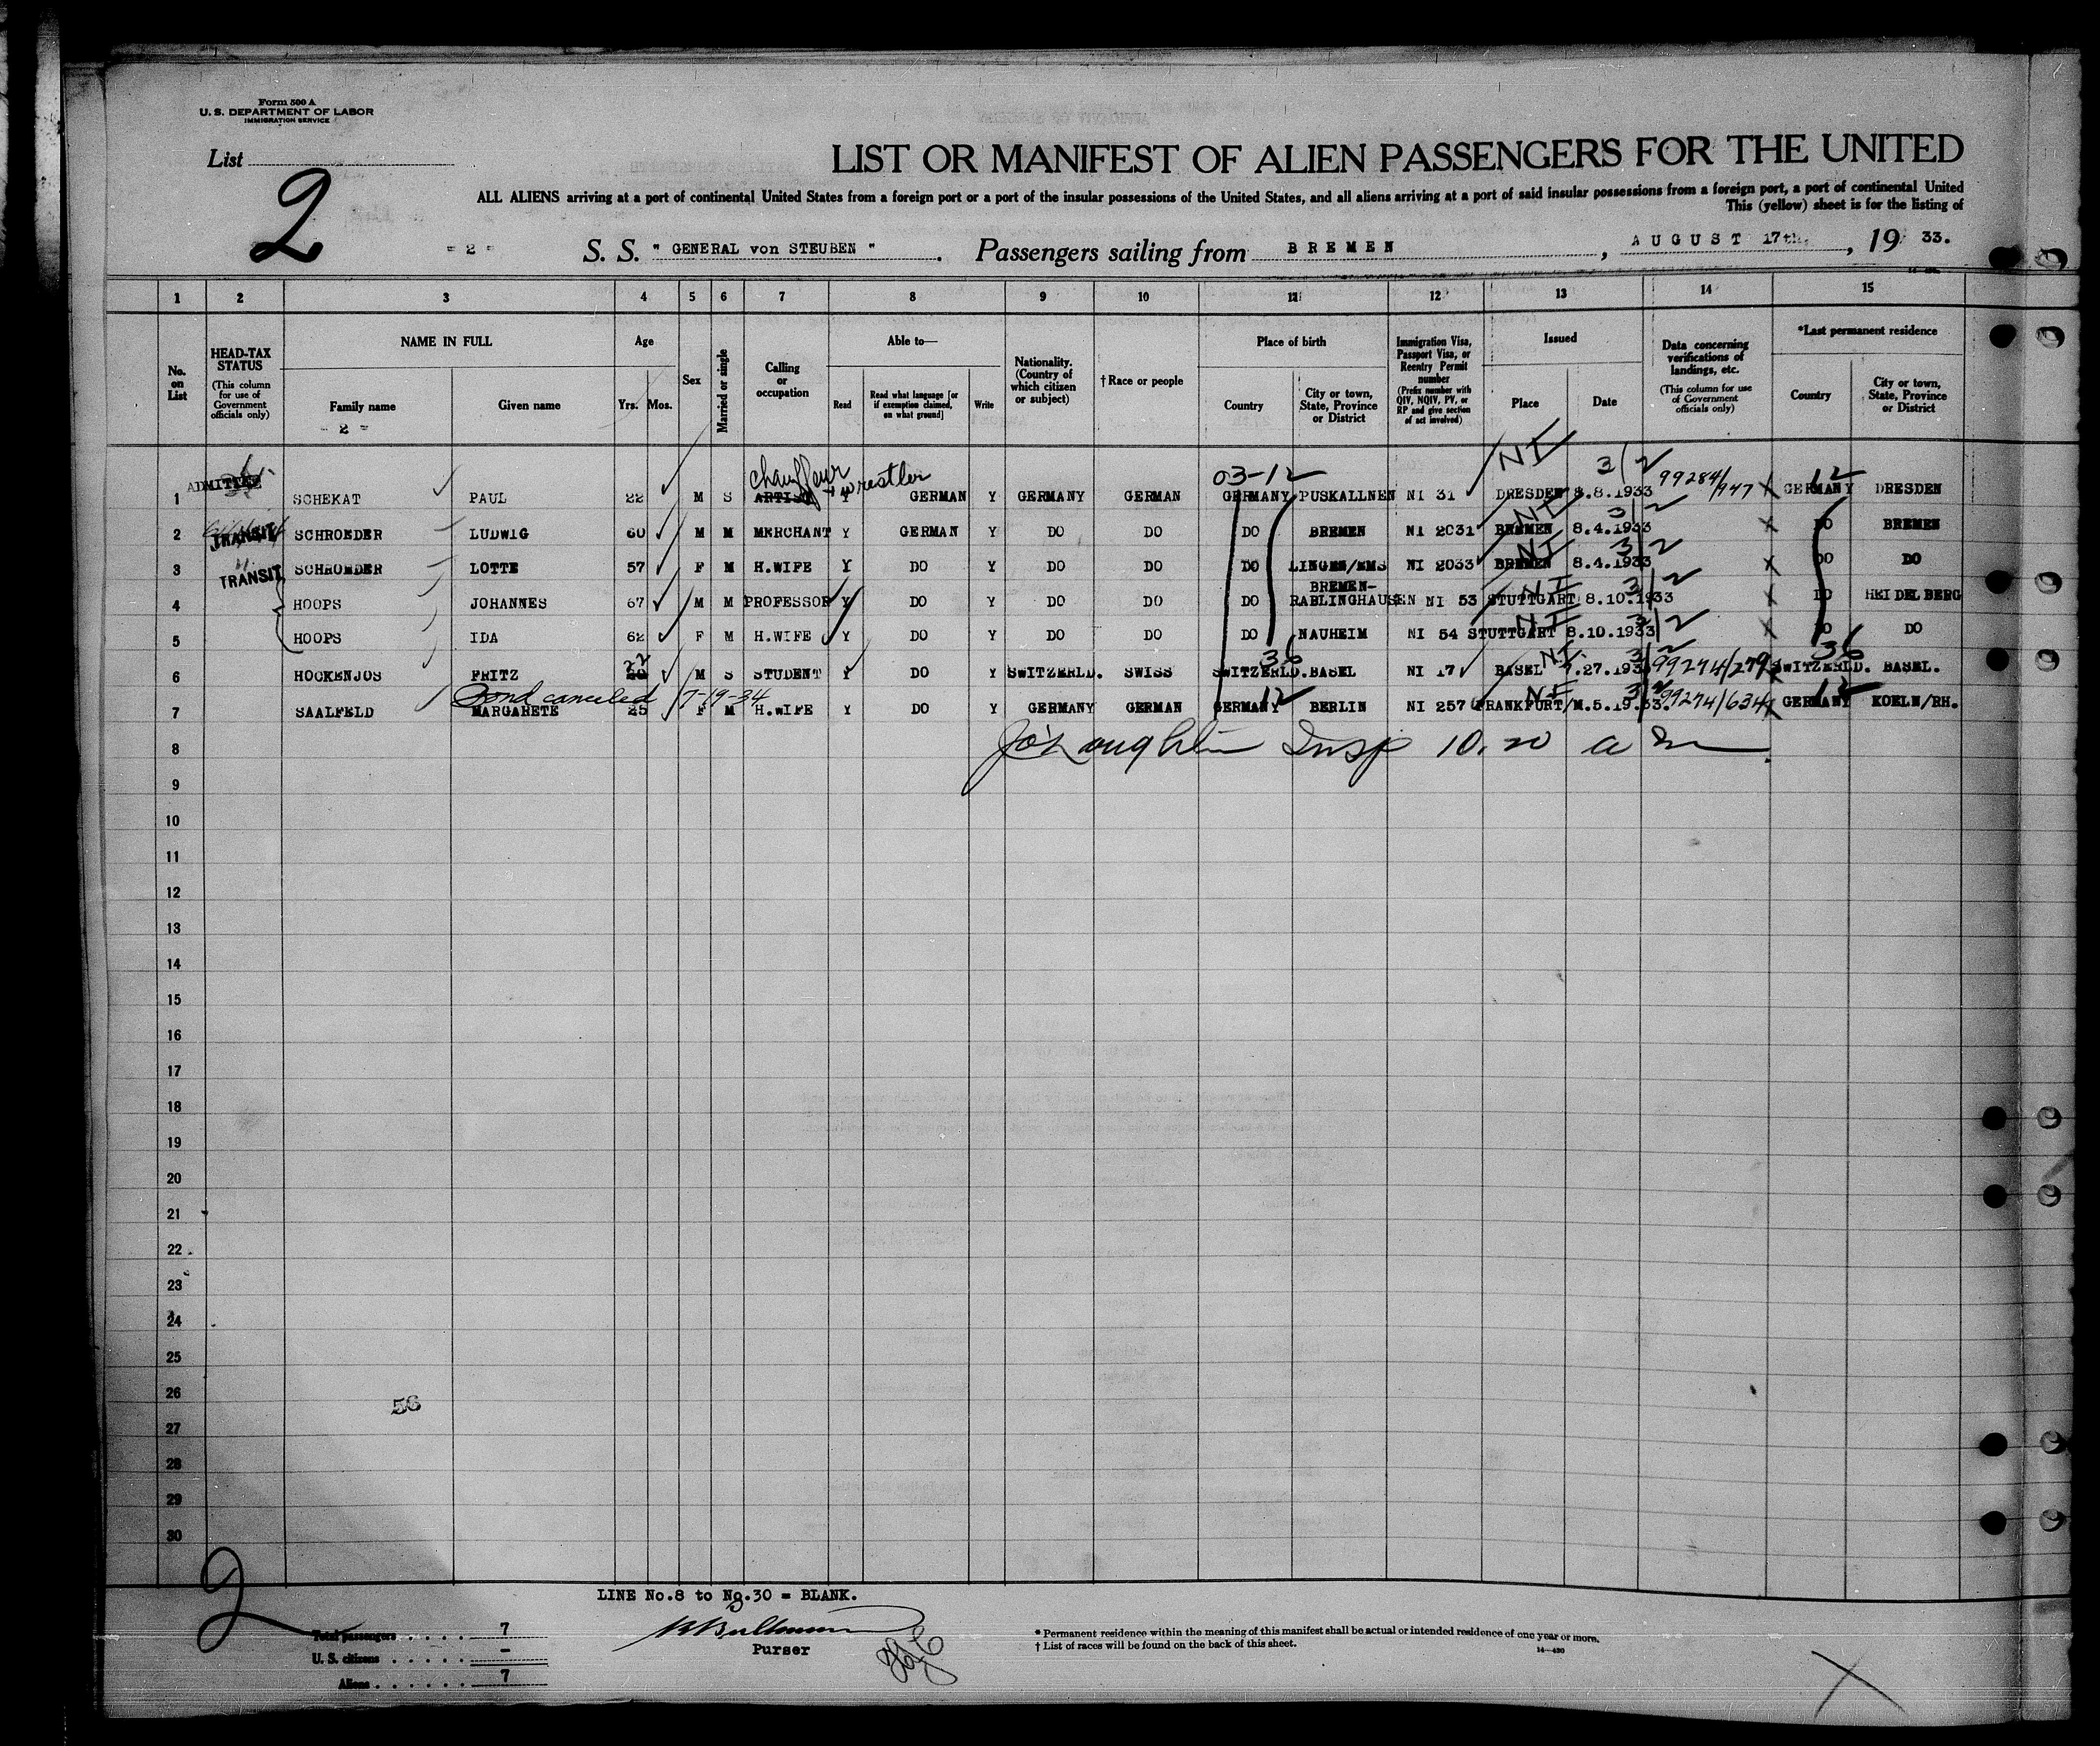 Form 500 A
U. S. DEPARTMENT OF LABOR
IMMIGRATION SERVICE
List
2
LIST OR MANIFEST OF ALIEN PASSENGERS FOR THE UNITED
ALL ALIENS arriving at a port of continental United States from a foreign port or a port of the insular possessions of the United States, and all aliens arriving at a port of said insular possessions from a foreign port, a port of continental United
This (yellow) sheet is for the listing of
- 2 - S. S. " GENERAL von STEUBEN " . Passengers sailing from BREMEN , AUGUST 17th, , 19 33.
1 2 3 4 5 6 7 8 9 10 11 12 13 14 15
No. on List
HEAD-TAX STATUS (This column for use of Government officials only)
NAME IN FULL
Family name
- 2 -
Given name
Age
Yrs. Mos.
Sex
Married or single
Calling or occupation
Able to—
Read
Read what language [or if exemption claimed, on what ground]
Write
Nationality. (Country of which citizen or subject)
† Race or people
Place of birth
Country
City or town, State, Province or District
Immigration Visa, Passport Visa, or Reentry Permit number (Prefix number with QIV, NQIV, PV, or RP and give section of act involved)
Issued
Place
Date
Data concerning verifications of landings, etc. (This column for use of Government officials only)
*Last permanent residence
Country
City or town, State, Province or District
chauffeur + wrestler 03-12 NI 3/2 99284/947 12
1 ADMITTED SCHEKAT PAUL 22 M S ARTIST Y GERMAN Y GERMANY GERMAN GERMANY PUSKALLNEN NI 31 DRESDEN 8.8.1933 X GERMANY DRESDEN
2 TRANSIT SCHROEDER LUDWIG 60 M M MERCHANT Y GERMAN Y DO DO DO BREMEN NI 2031 BREMEN 8.4.1933 NI 3/2 X DO BREMEN
3 TRANSIT SCHROEDER LOTTE 57 F M H.WIFE Y DO Y DO DO DO LINGEN/EMS NI 2033 BREMEN 8.4.1933 NI 3/2 X DO DO
4 HOOPS JOHANNES 67 M M PROFESSOR Y DO Y DO DO DO BREMEN-RABLINGHAUSEN NI 53 STUTTGART 8.10.1933 NI 3/2 X DO HEIDELBERG
5 HOOPS IDA 62 F M H.WIFE Y DO Y DO DO DO NAUHEIM NI 54 STUTTGART 8.10.1933 NI 3/2 X DO DO
6 HOCKENJOS FRITZ 22 M S STUDENT Y DO Y SWITZERLD. SWISS SWITZERLD. BASEL NI 17 BASEL 7.27.193 NI 3/2 99274/279 X SWITZERLD. BASEL. 36 36
Bond canceled 7-19-34
7 SAALFELD MARGARETE 25 F M H.WIFE Y DO Y GERMANY GERMAN GERMANY BERLIN NI 257 FRANKFURT/M. 5.19.33. NI 3/2 99274/634 X GERMANY KOELN/RH. 12 12
8 Insp 10.20 a m
9
10
11
12
13
14
15
16
17
18
19
20
21
22
23
24
25
26
56
27
28
29
30
2
LINE No.8 to No.30 = BLANK.
Purser
Total passengers 7
U. S. citizens -
Aliens 7
* Permanent residence within the meaning of this manifest shall be actual or intended residence of one year or more.
† List of races will be found on the back of this sheet.
14—430